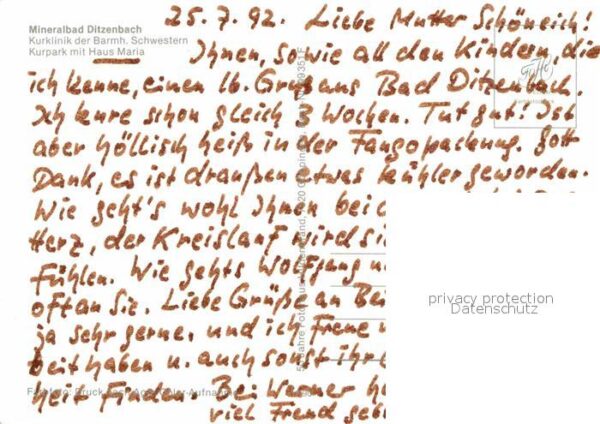 25. 7. 92. Liebe Mutter Schöneich!
Mineralbad Ditzenbach
Kurklinik der Barmh. Schwestern
Kurpark mit Haus Maria
Ihnen, sowie all den Kindern, die
ich kenne, einen lb. Gruß aus Bad Ditzenbach.
Ich kure schon gleich 3 Wochen. Tut gut! Ist
aber höllisch heiß in der Fangopackung. Gott
Dank, es ist draußen etwas kühler geworden.
Wie geht's wohl Ihnen bei
Herz, der Kreislauf wird si
fühlen. Wie gehts Wolfgang
oft an Sie. Liebe Grüße an
ja sehr gerne, und ich Freue
beit haben u. auch sonst ihr
heit Finden. Bei Werner
viel Freud
privacy protection
Datenschutz